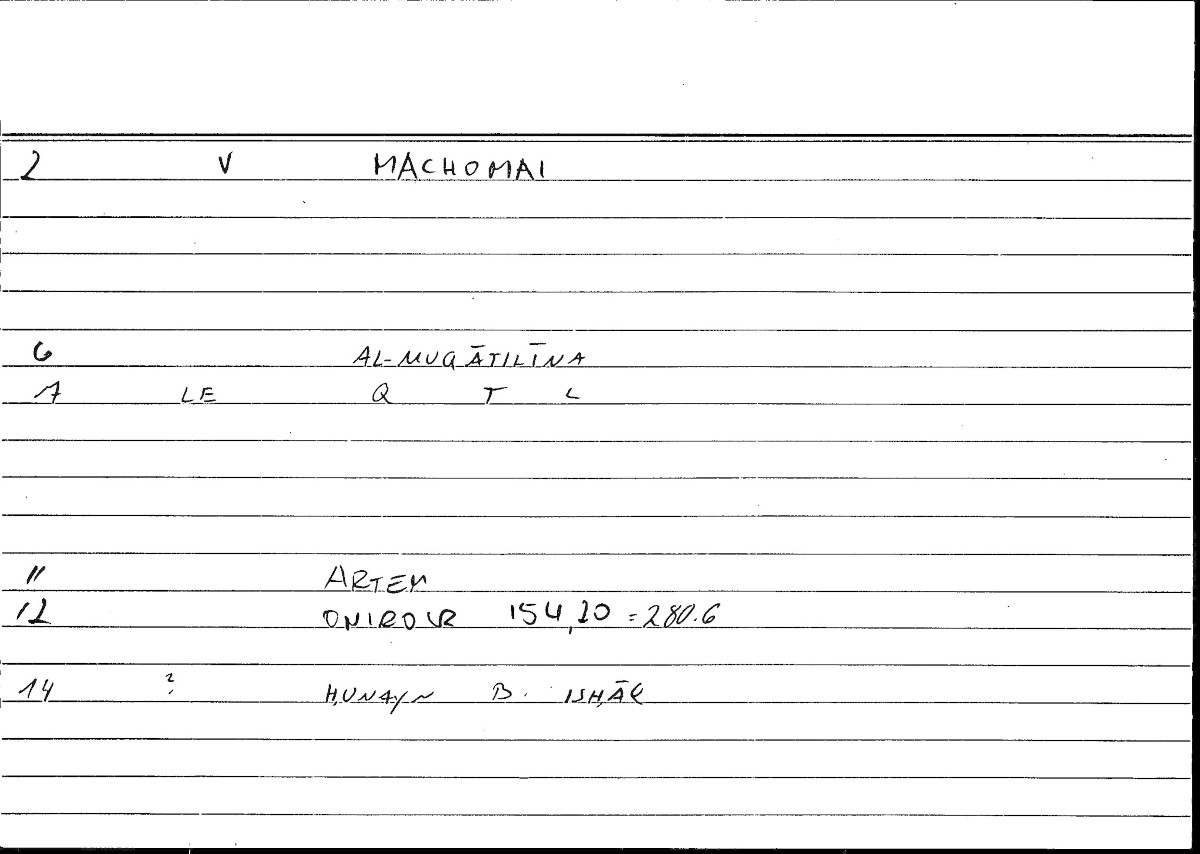 2 V MACHOMAI
6 AL-MUQĀTILĪNA
7 LE Q T L
11 ARTEM
12 ONIROCR 154,20 = 280.6
14 ? ḤUNAYN B. ISḤĀQ